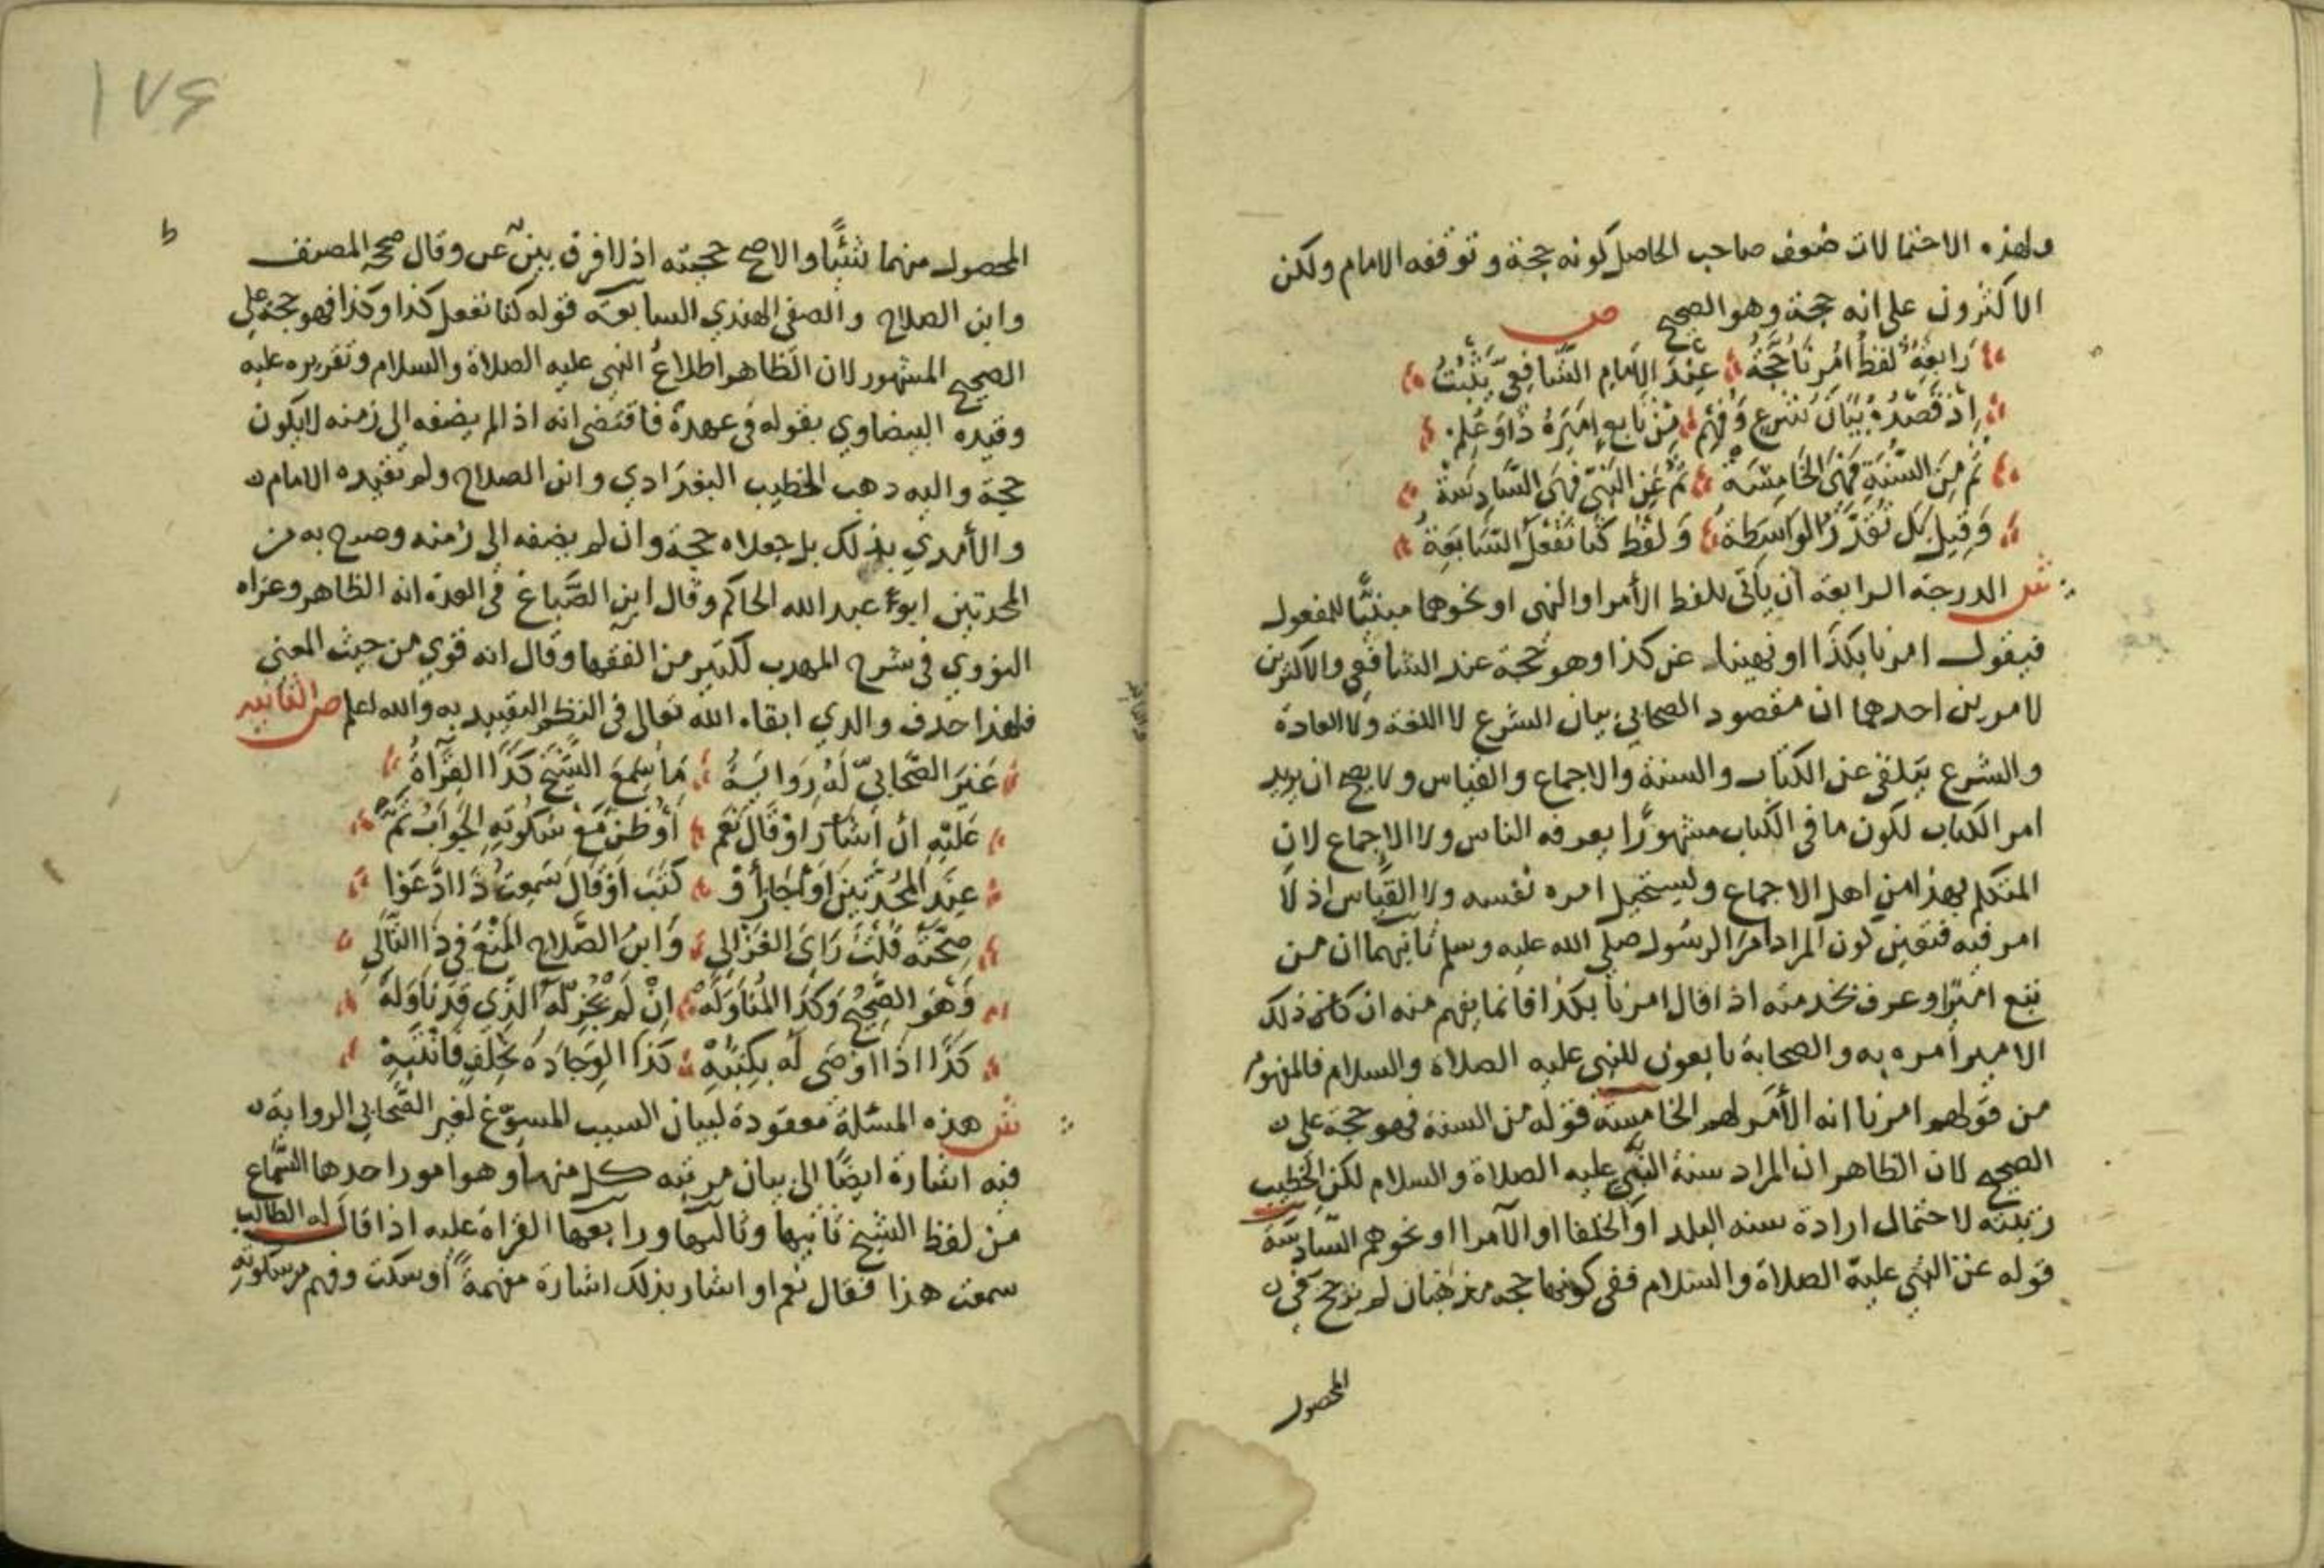 ولهذه الاحتمالات ضعف صاحب الحاصل كونه حجة وتوقفه الامام ولكن
الاكثرون على انه حجة وهو الصحيح ص
رَابِعَةُ لفظُ امُرنَا حُجَّةُ عِنْدَ الاِمَامِ الشَّافِعِيّ يَثْبُتُ
اِذ قَصْدُهُ بَيَانُ شرعٍ وَفُهِمْ مِنْ تَابعٍ اَمِيرَهُ ذَا وَعُلِمْ
ثُمَّ مِنَ السُّنَةِ فَهْىَ الخَامِسَةْ ثُمَّ عَنِ النَّبِيّ فَهْىَ السَّادِسَةْ
وَقِيلَ بَل تُقَدَّرُ الوَاسَطة وَلَفْظ كُنَّا نَفْعَلُ السَّابِعَةْ
ش الدرجة الرابعة ان ياتى بلفظ الأمر او النهى او نحوهما مبنيًّا للمفعول
فيقول امرنا بكذا او نهينا عن كذا وهو حجة عند الشافعي والاكثرين
لامرين احدهما ان مقصود الصحابي بيان الشرع لا اللغة ولا العادة
والشرع يتلقى عن الكتاب والسنة والاجماع والقياس ولا يصح ان يريد
امر الكتاب لكون ما في الكتاب مشهورًا يعرفه الناس ولا الاجماع لان
المتكلم بهذا من اهل الاجماع ويستحيل امره نفسه ولا القياس اذ لا
امر فيه فتعين كون المراد امر الرسول صلى الله عليه وسلم ثانيهما ان من
تبع اميرًا وعرف بخدمته اذا قال امرنا بكذا فانما يفهم منه ان كان ذلك
الامير امره به والصحابة تابعون للنبي عليه الصلاة والسلام فالمفهوم
من قولهم امرنا انه الأمر لهم الخامسة قوله من السنة فهو حجة على
الصحيح لان الظاهر ان المراد سنة النبي عليه الصلاة والسلام لكن الخطيب
رتبته لاحتمال ارادة سنه البلد او الخلفا او الامرا او نحوهم السادسة
قوله عن النبي عليه الصلاة والسلام ففي كونها حجه مذهبان لم يرجح في
المحصول
١٧٦
المحصول منهما شيئًا والاصح حجيته اذ لا فرق بين عن وقال صححه المصنف
وابن الصلاح والصفي الهندي السابعة قوله كنا نفعل كذا وكذا فهو حجة على
الصحيح المشهور لان الظاهر اطلاع النبي عليه الصلاة والسلام وتقريره عليه
وقيده البيضاوي بقوله في عهده فاقتضى انه اذا لم يضفه الى زمنه لا يكون
حجة واليه ذهب الخطيب البغدادي وابن الصلاح ولم يقيده الامام
والأمدي بذلك بل جعلاه حجة وان لم يضفه الى زمنه وصرح به من
المحدثين ابو عبد الله الحاكم وقال ابن الصَّباغ في العدة انه الظاهر وعزاه
النووي في شرح المهذب لكثير من الفقها وقال انه قوي من حيث المعنى
فلهذا حذف والدي ابقاه الله تعالى في النظم التقييد به والله اعلم ص الثانيه
غَيرَ الصَّحَابيّ لَهُ رِوَايَةُ مَا سَمِعَ الشَّيْخَ كَذَا القِرَاةُ
عَلَيْهِ ان اَشَارَ اوْ قَالَ نَعَم اَوْ ظن مَعْ سُكُوتِهِ الجَوَابُ ثَمّ
عِندَ المُحَدّثِينَ اَوْ اَجَازَ أوْ كَتَبَ اَوْ قَالَ سَمِعتُ ذَا ادَّعَوْا
صِحَّتَهُ قُلْتُ رَاَى الغَزَالي وَابنُ الصَّلاح المَنْعَ فى ذَا التَّالَي
وَهْوَ الصَّحِيحُ وَكَذَا المُنَاوَلَةْ اِنْ لَمْ يُجِزْ لَهُ الذَّي قَد نَاوَلَهْ
كَذَا اذَا اَوْصَى لَه بِكِتبِهْ كَذَا الوِجَادَةُ بِخُلْفٍ فَانْتَبِهْ
ش هذه المسئلة معقودة لبيان السبب المسوّغ لغير الصَّحابي الرواية
فيه اشارة ايضًا الى بيان مرتبه كل منها وهو امور احدها السَّماع
من لفظ الشيخ ثانيها وثالثها ورابعها القراة عليه اذا قال له الطالب
سمعت هذا فقال نعم او اشار بذلك اشارة مفهمةً او سكت وفهم من سكوته